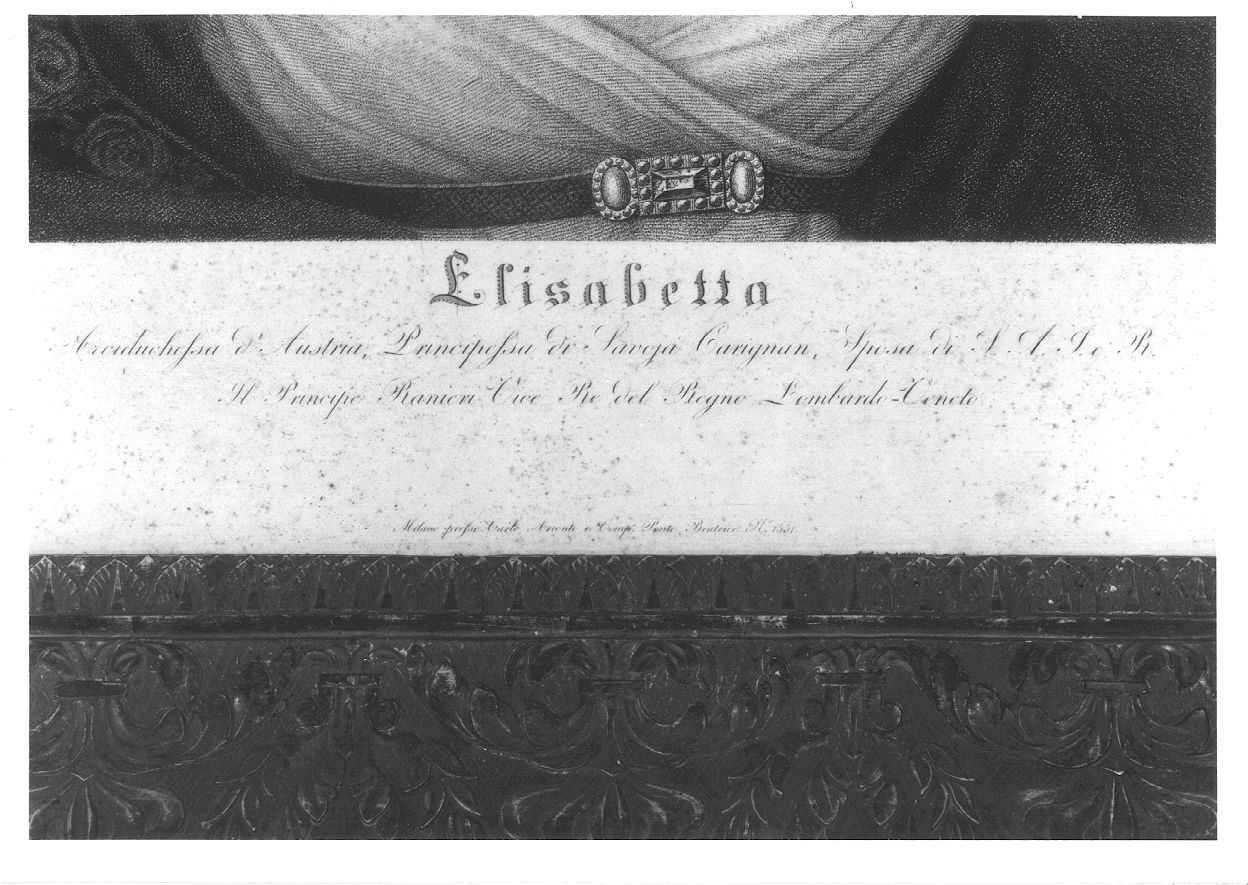 Elisabetta
Arciduchessa d'Austria, Principessa di Savoja Carignan, Sposa di S. A. I. e R.
Il Principe Ranieri Vice Re del Regno Lombardo-Veneto
Milano presso Carlo e Comp. Ponte Beatrice N. 1551